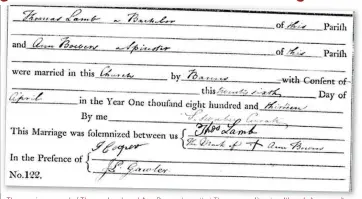 Thomas Lamb a Bachelor of this Parish
and Ann Bowers Spinster of this Parish
were married in this Church by Banns with Consent of
this twenty sixth Day of
April in the Year One thousand eight hundred and thirteen
By me Curate
This Marriage was solemnized between us { Thos Lamb
The Mark of + Ann Bowers
In the Presence of { J Cooper
J Gawler
No.122.